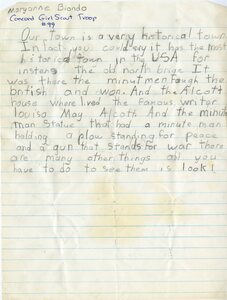 Maryanne Biondo
Concord Girl Scout Troop
Our Town is a very historical town
In fact you could say it has the most
historical town in the USA for
instans The old north brige It
was there the minutmen fough the
british and won. And the Alcott
house where lived the famous writer
louisa May Alcott. And the minute
man Statue that had a minute man
holding a plow standing for peace
and a gun that stands for war there
are many other things all you
have to do to see them is look!